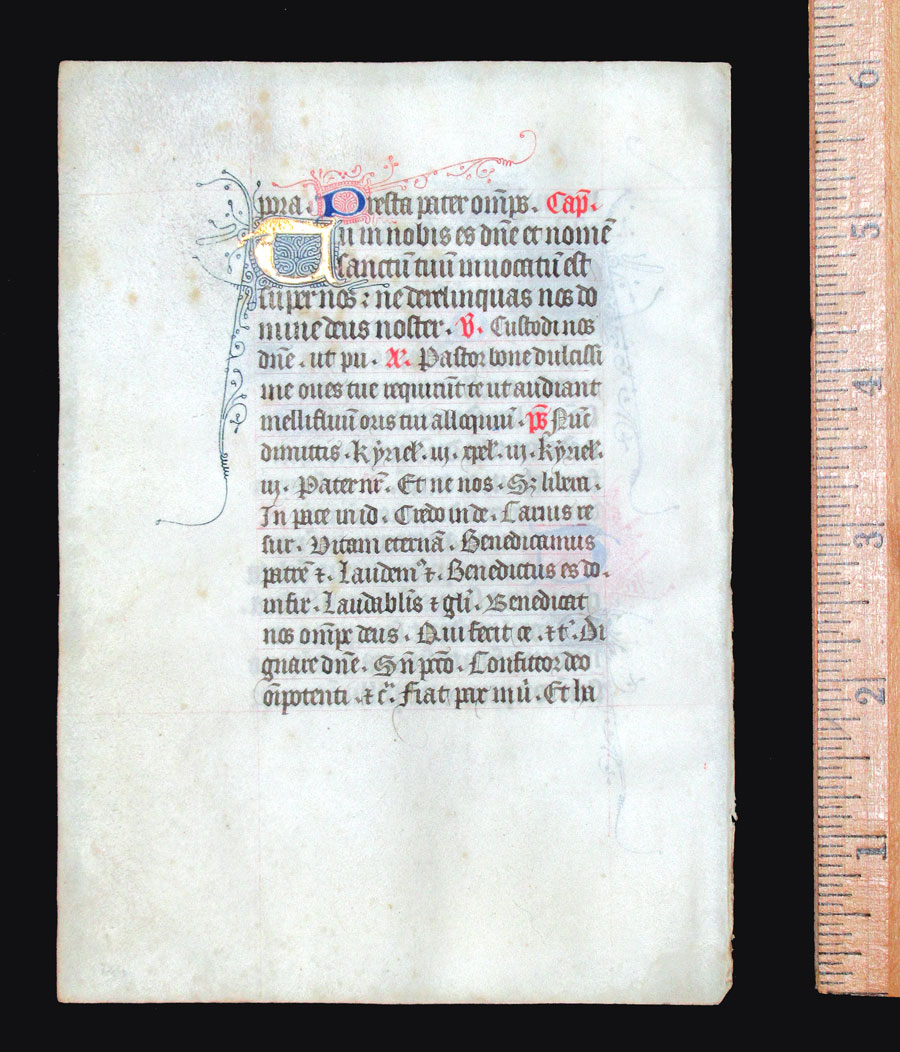 pora . Presta pater om̄ps . Cap̄.
Tu in nobis es dn̄e et nomē
sanctū tuū inuocatū est
super nos : ne derelinquas nos do
mine deus noster . V̄. Custodi nos
dn̄e . ut pu . A. Pastor bone dulcissi
me oues tue requirūt te ut audiant
mellifluū oris tui alloquiū . p̄s Nūc
dimittis . kyriel . iij . xpel . iij . kyriel .
iij . Pater nr̄ . Et ne nos . Sȝ libera .
In pace in id . Credo in de . Carnis re
sur . Vitam eternā . Benedicamus
patrē ⁊ . Laudemꝰ ⁊ . Benedictus es do .
in fir . Laudabl̄is ⁊ gl̄i . Benedicat
nos om̄pc deus . Qui fecit ce . ⁊ t . Di
gnare dn̄e . Sn̄ pctō . Confiteor deo
om̄ipotenti . ⁊ c . Fiat pax in ū . Et ha
6
5
4
3
2
1